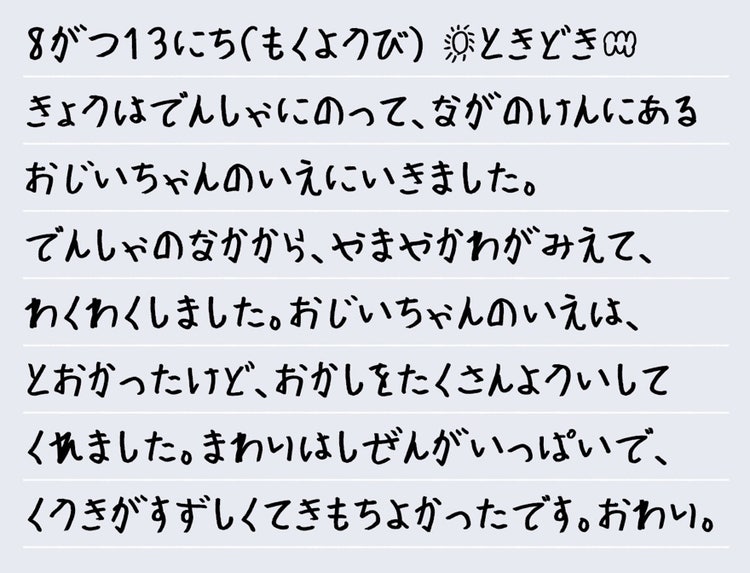 8がつ13にち(もくようび) ☀ときどき☁
きょうはでんしゃにのって、ながのけんにある
おじいちゃんのいえにいきました。
でんしゃのなかから、やまやかわがみえて、
わくわくしました。おじいちゃんのいえは、
とおかったけど、おかしをたくさんよういして
くれました。まわりはしぜんがいっぱいで、
くうきがすずしくてきもちよかったです。おわり。